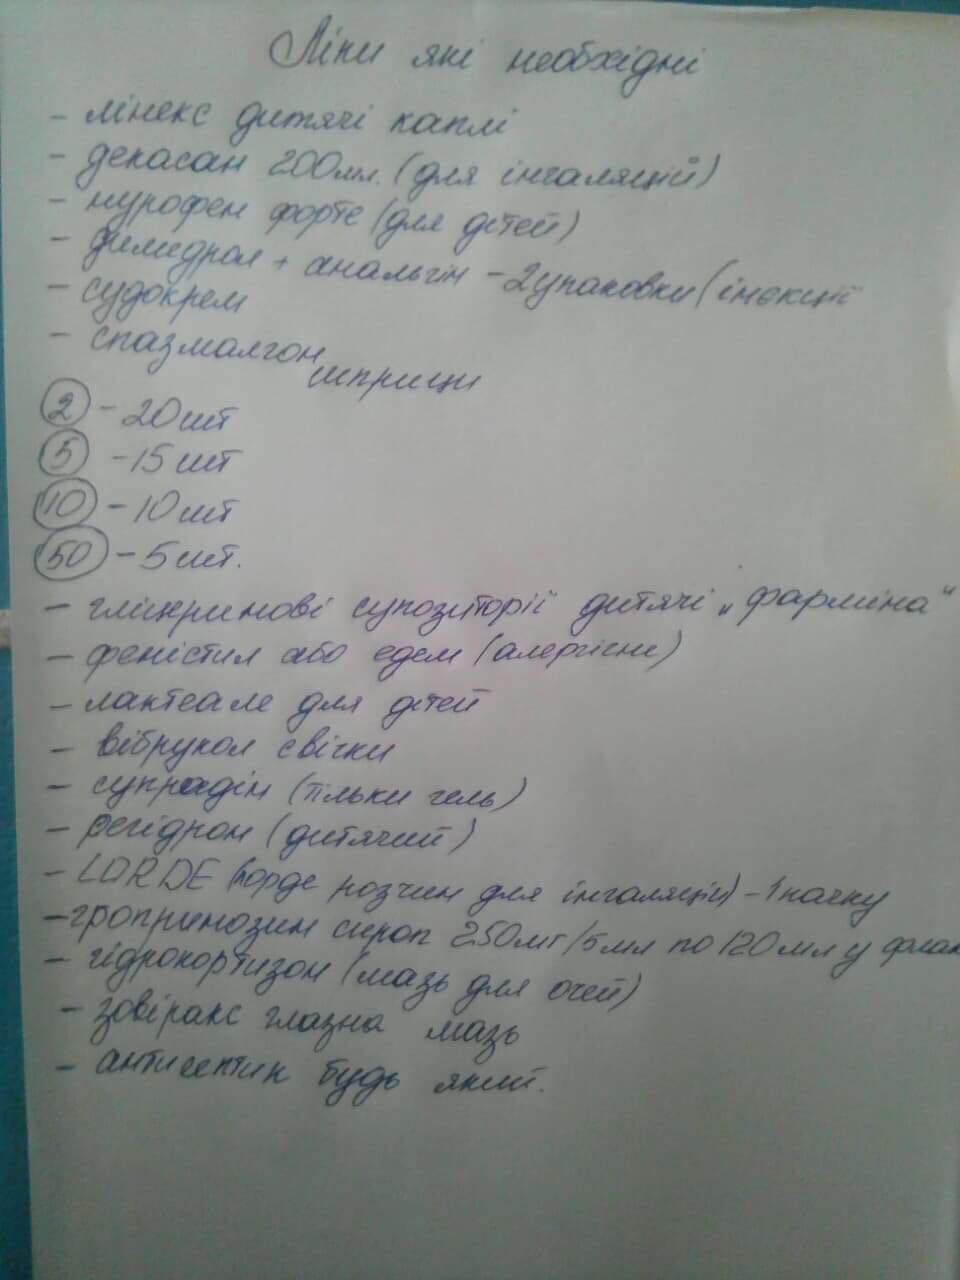 Ліки які необхідні
- лінекс дитячі каплі
- декасан 200мл. (для інгаляцій)
- нурофен форте (для дітей)
- димидрол + анальгін - 2 упаковки (інєкції
- судокрем
- спазмалгон
шприци
2 - 20 шт
5 - 15 шт
10 - 10 шт
50 - 5 шт.
- гліциринові супозіторії дитячі „фарміна"
- феністил або едем (алергічне)
- лактеале для дітей
- вібрукол свічки
- супрадін (тільки гель)
- регідрон (дитячий)
- LORDE (лорде розчин для інгаляцій) - 1 пачку
- гропринозин сироп 250мг/5мл по 120мл у флак
- гідрокортизон (мазь для очей)
- зовіракс глазна мазь
- антисептик будь який.